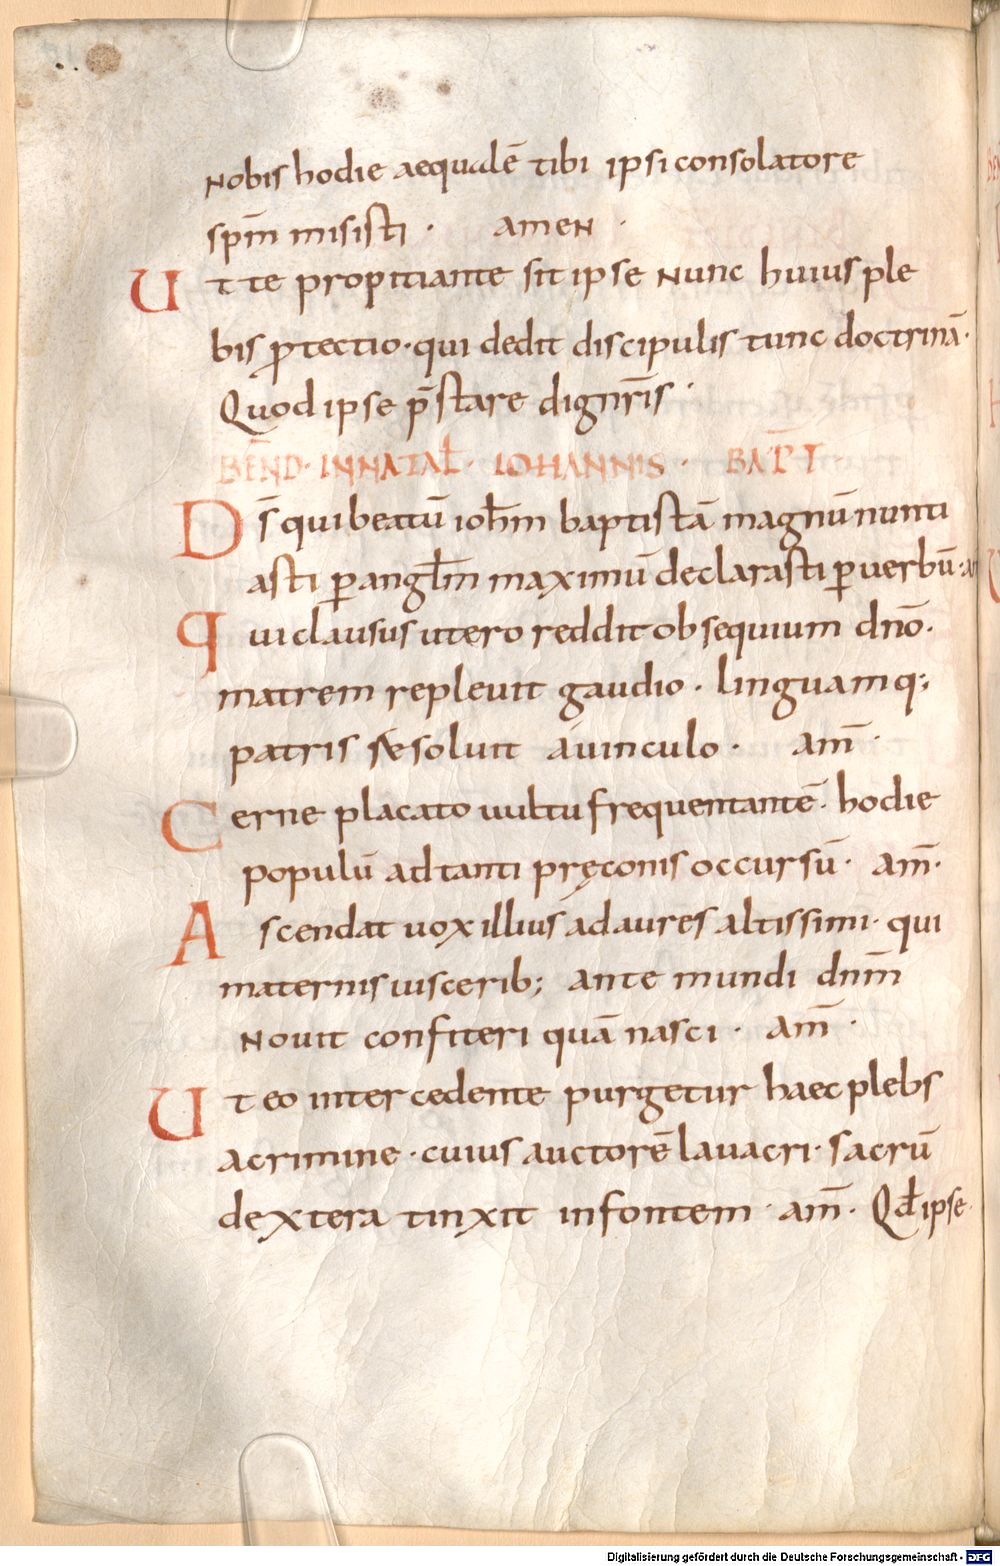 nobis hodie aequalē tibi ipsi consolatore
spm̄ misisti · amen ·
Ut te propitiante sit ipse nunc huius ple
bis ꝓtectio · qui dedit discipulis tunc doctrinā ·
Quod ipse p̄stare dignr̄is ·
BEN̄D · IN NATAL̄ · IOHANNIS · BAP̄T
Ds̄ qui beatū ioh̄m baptistā magnū nunti
asti ꝑ angl̄m maximū declarasti ꝑ uerbū · a
qui clausus utero reddit obsequium dnō ·
matrem repleuit gaudio · linguamq;
patris resoluit a uinculo · am̄ ·
Cerne placato uultu frequentantē · hodie
populū ad tanti pręconis occursū · am̄ ·
Ascendat uox illius ad aures altissimi · qui
maternis uiscerib; ante mundi dnm̄
nouit confiteri quā nasci · am̄ ·
Ut eo intercedente purgetur haec plebs
a crimine · cuius auctorē lauacri · sacrū
dextera tinxit in fontem · am̄ · Qd̄ ipse ·
Digitalisierung gefördert durch die Deutsche Forschungsgemeinschaft - DFG